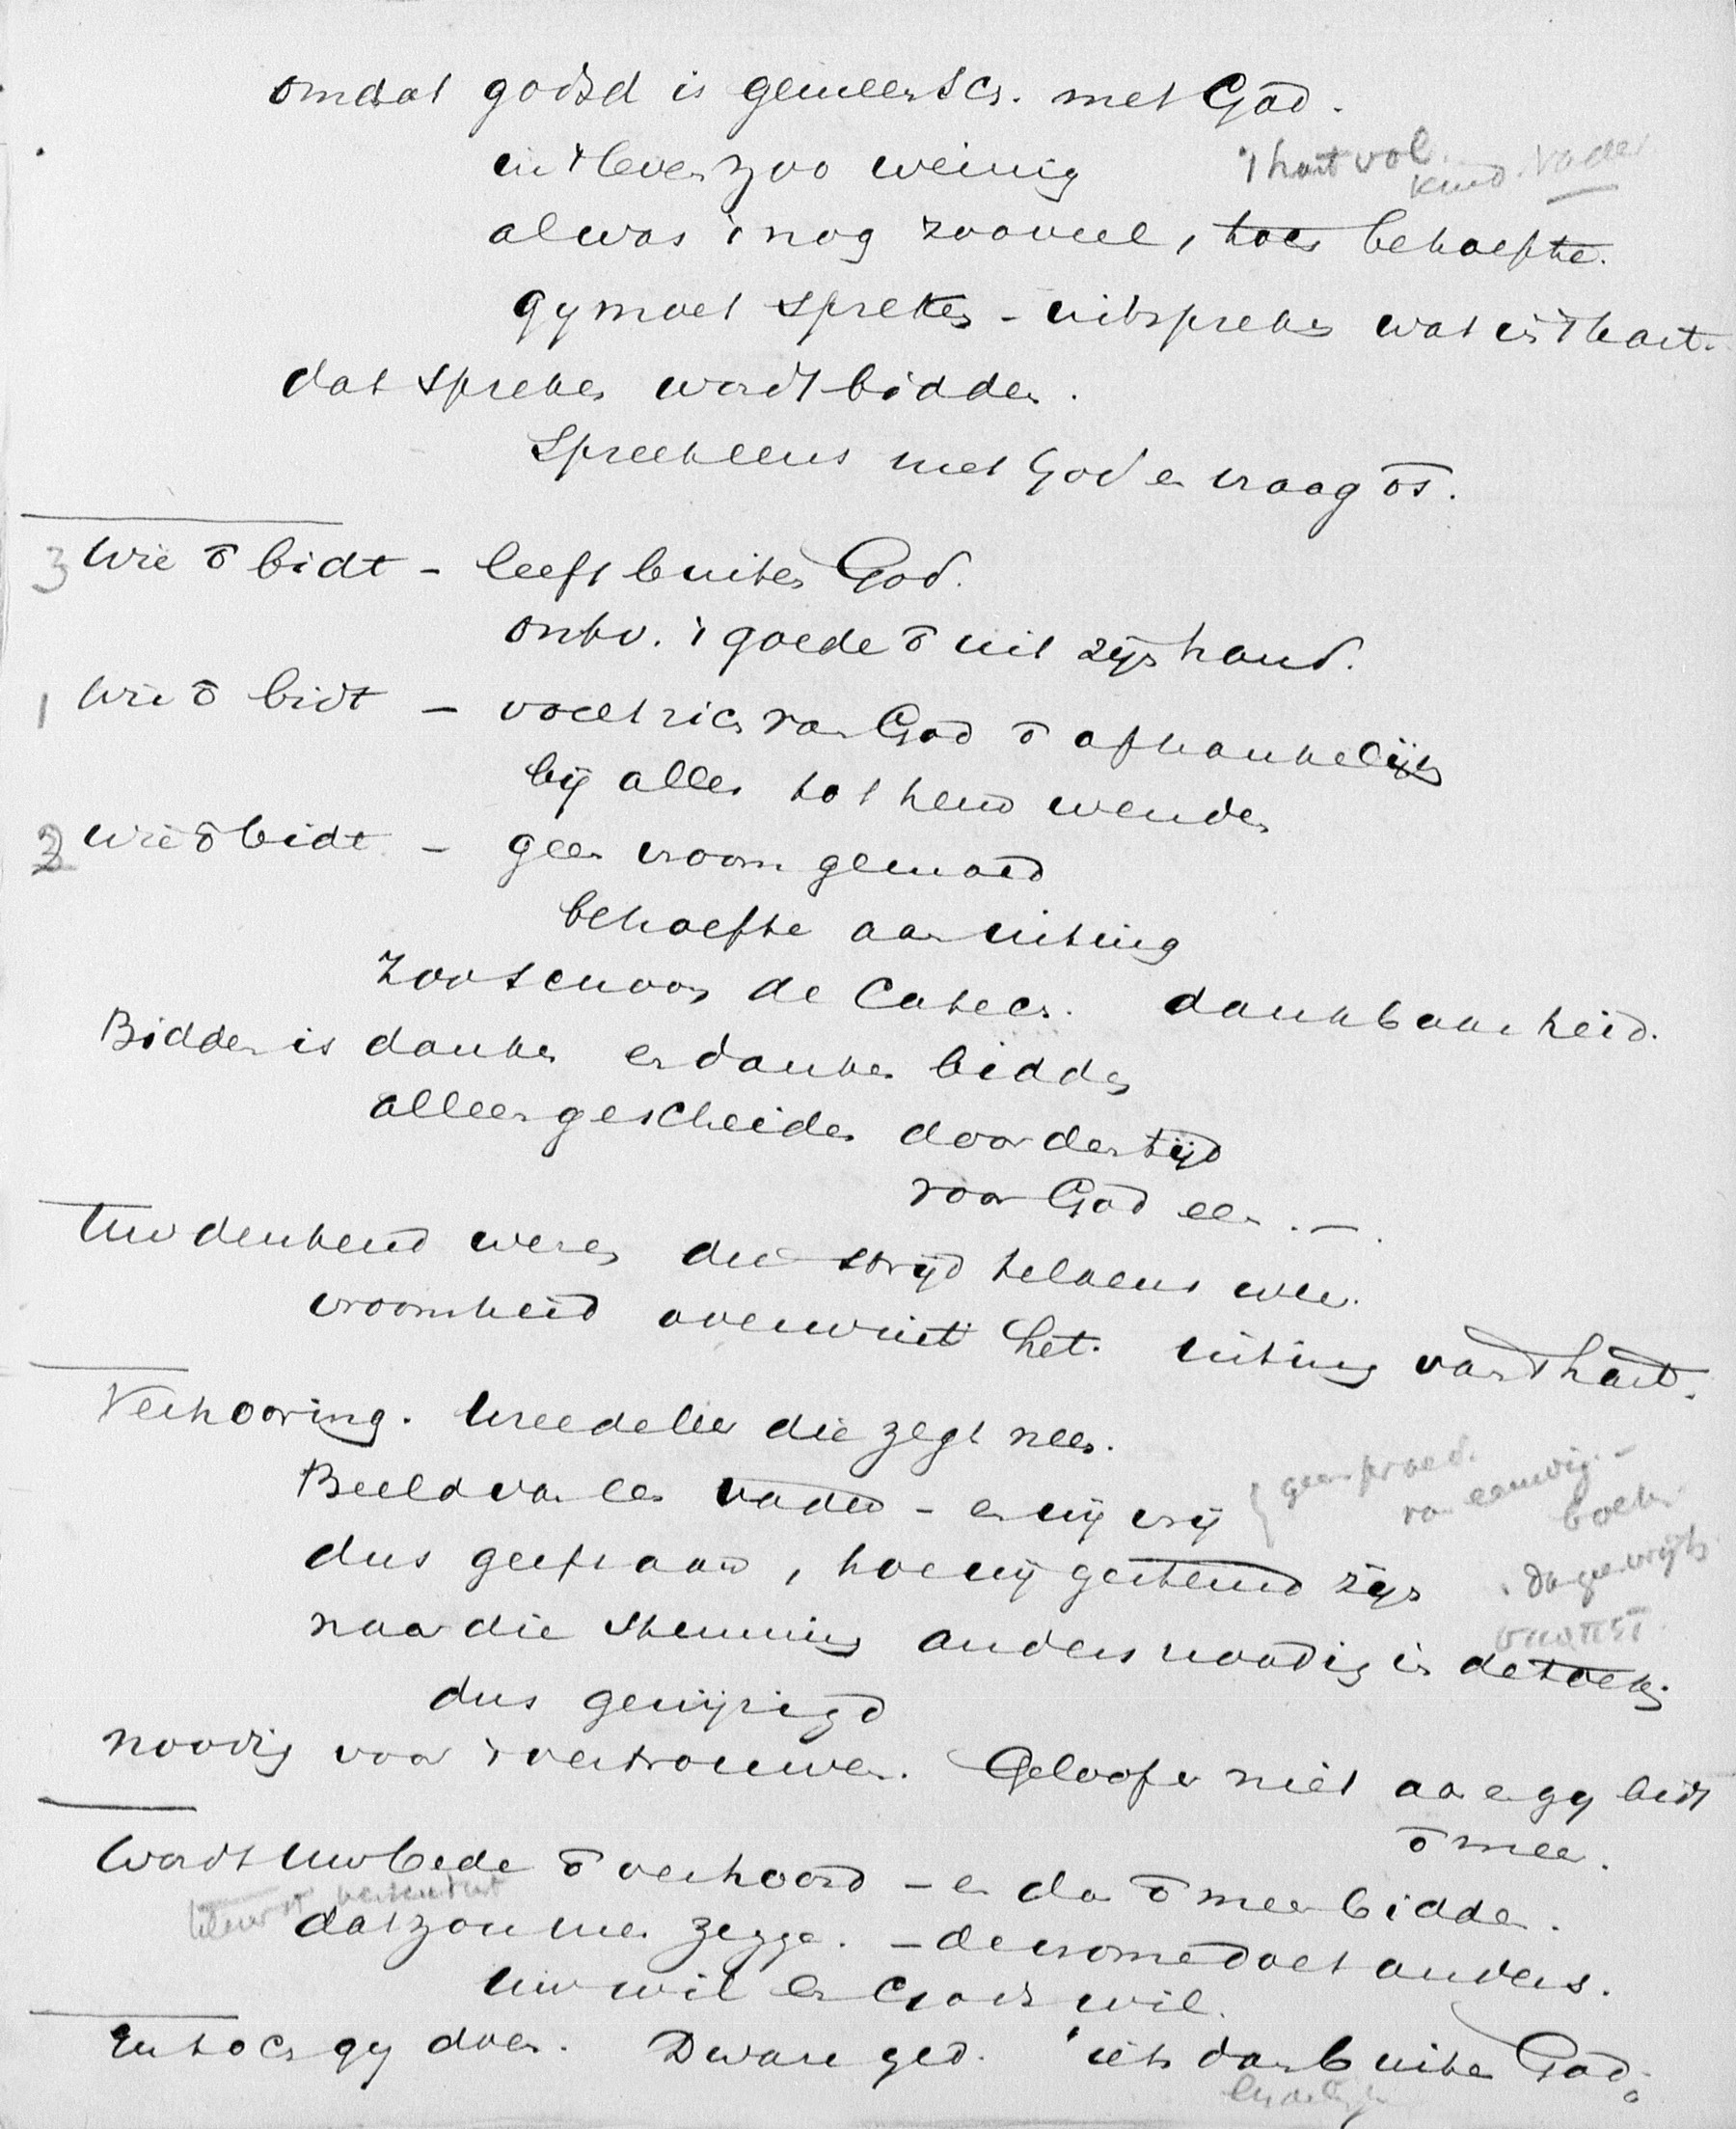 omdat godsd is gemeensch. met God.
in 't leven zoo weinig
't hart vol. kind. Vader.
al was 't nog zooveel, toch behoefte.
gy moet spreken - uitspreken wat in 't hart.
dat spreken wordt bidden.
Spreek eens met God en vraag ō.
3 Wie ō bidt - leeft buiten God.
ontv. 't goede ō uit zijn hand.
1 Wie ō bidt - voelt zich van God ō afhankelijk
bij alles tot hem wenden
2 wie ō bidt - geen vroom gemoed
behoefte aan uiting
zoo de Catech. dankbaarheid.
Bidden is danken en danken bidden
alleen gescheiden door den tijd
voor God een. -
Uw denkend wezen die strijd telkens weer.
vroomheid overwint het. uiting van 't hart.
Verhooring. die zegt neen.
Beeld van een vader - en wij vrij
{ geen
van eeuwig. -
boek.
dus geeft aan, hoe wij gestemd zijn
naar die stemming anders noodig is de toek.
dus gewijzigd
noodig voor 't vertrouwen. Geloof er niet aan en gy bidt
ō meer.
Wordt uw bede ō verhoord - en dan ō meer bidden.
dat zou men zeggen. - de vrome doet anders.
Uw wil en Gods wil.
En toch gy doen. Dwaze ged. iets dan buiten God.